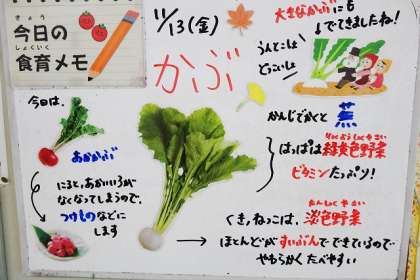 きょう
今日の
しょくいく
食育メモ
11/13(金)
かぶ
大きなかぶにも
でてきましたね!
うんとこしょ
どっこいしょ
かんじでかくと 蕪
はっぱは緑黄色野菜
りょくおうしょくやさい
ビタミンたっぷり!
今日は、
あかかぶ
にると、あかいいろが
なくなってしまうので、
つけものなどに
します
くき、ねっこは、淡色野菜
たんしょくやさい
ほとんどがすいぶんでできているので
やわらかくたべやすい